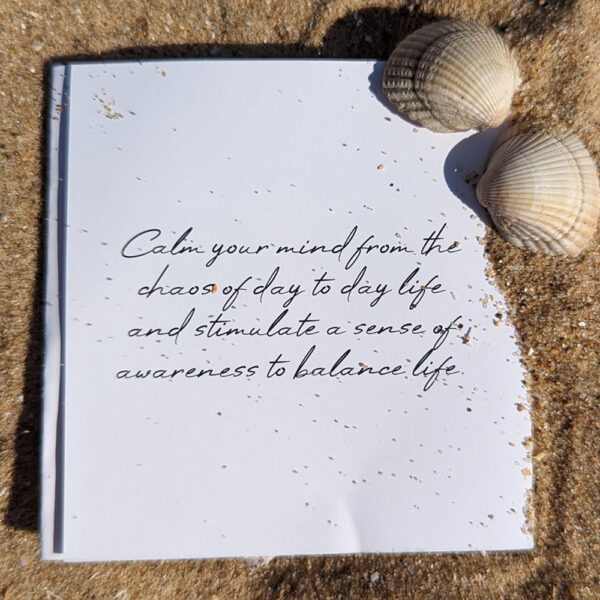 Calm your mind from the
chaos of day to day life
and stimulate a sense of
awareness to balance life.